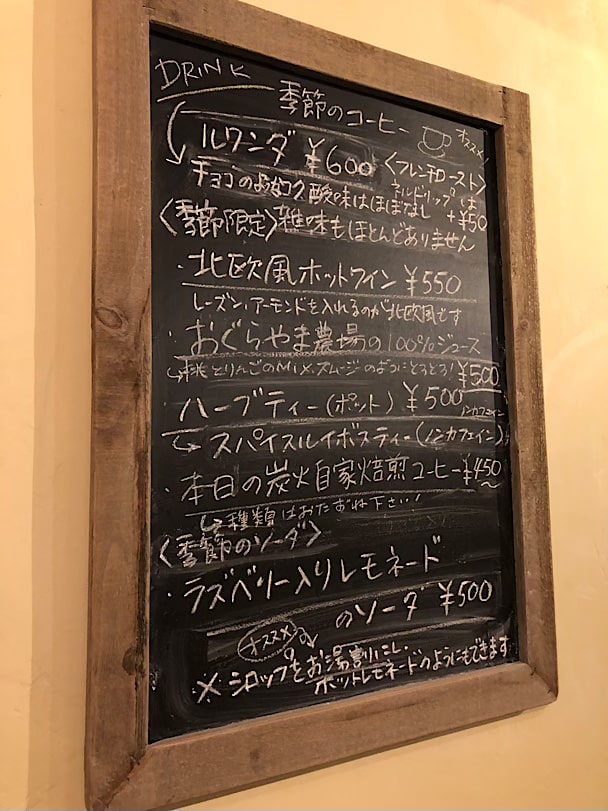 DRINK
季節のコーヒー オススメ!
ルワンダ ¥600 〈フレンチロースト〉
チョコのようなコク 酸味はほぼなし ネルドリップは +¥50
〈季節限定〉雑味もほとんどありません
・北欧風ホットワイン ¥550
レーズン、アーモンドを入れるのが北欧風です
・おぐらやま農場の100%ジュース
桃とりんごのMIX.スムージのようにとろとろ! ¥500
・ハーブティー(ポット) ¥500 ノンカフェイン
スパイスルイボスティー(ノンカフェイン)
・本日の炭火自家焙煎コーヒー ¥450〜
種類はおたずね下さい!
〈季節のソーダ〉
・ラズベリー入りレモネード
のソーダ ¥500
オススメ
※シロップをお湯割にし
ホットレモネードのようにもできます